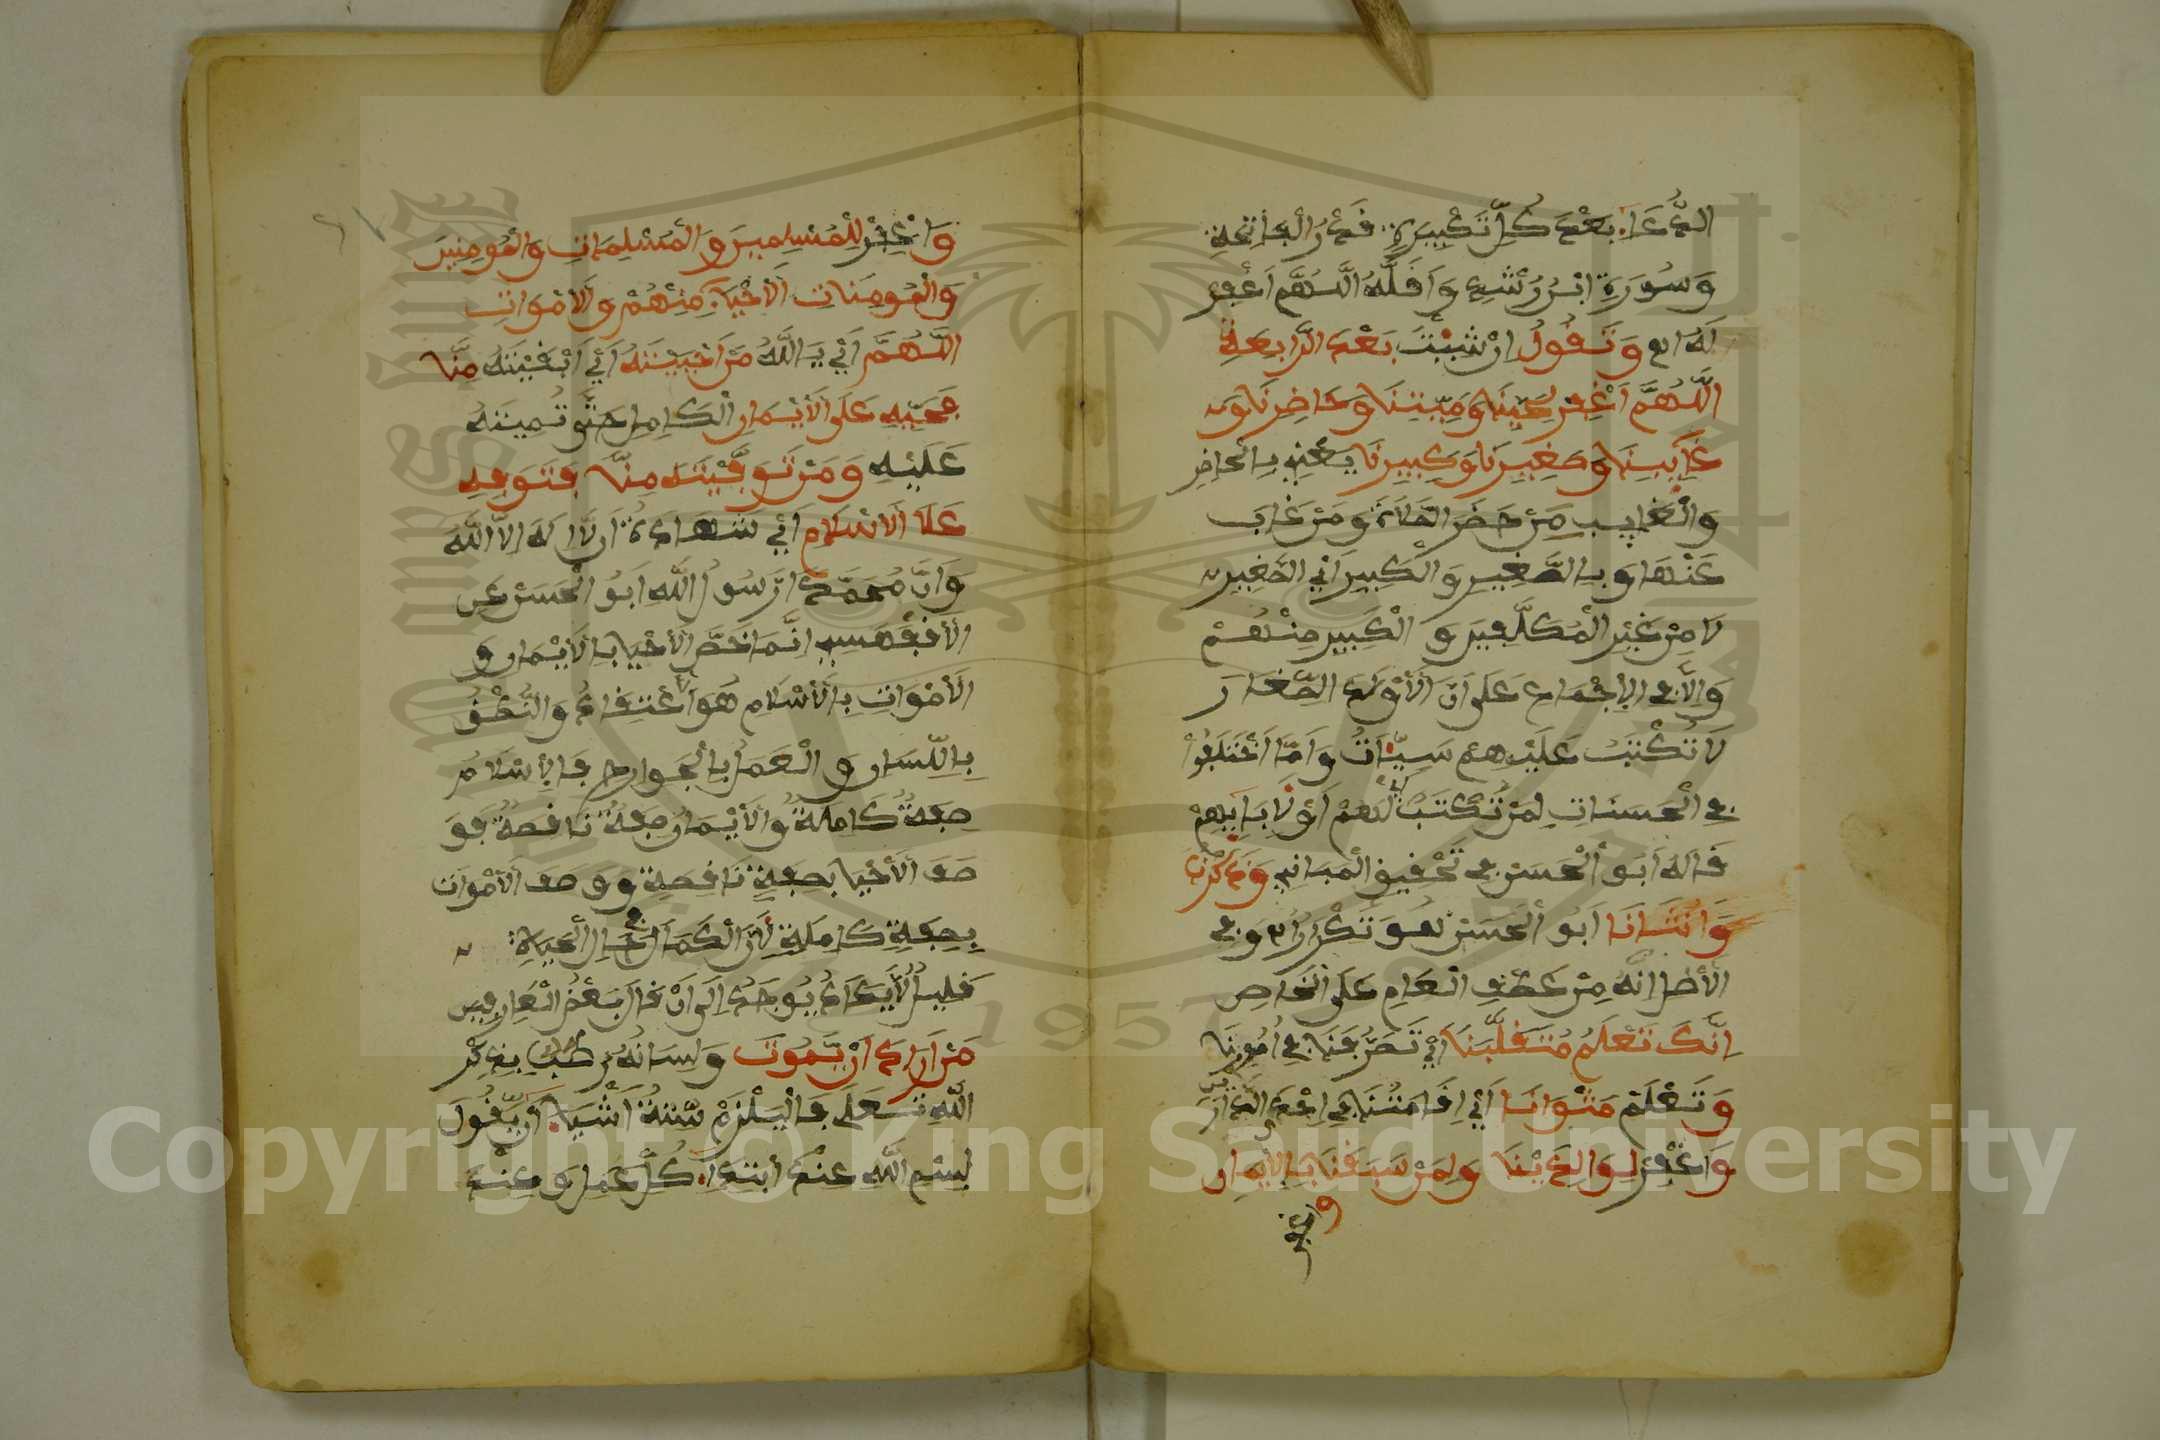 الدُّعَاء بَعْدَ كُلِّ تَكْبِيرَةٍ قَدْرُ الْفَاتِحَةِ
وَسُورَةِ ابْنُ رُشْدٍ وَأَقَلُّهُ اللَّهُمَّ اغْفِرْ
لَهُ اه وَتَقُولُ إِنْ شِئْتَ بَعْدَ الرَّابِعَةِ
اللَّهُمَّ اغْفِرْ لِحَيِّنَا وَمَيِّتِنَا وَحَاضِرِنَا وَ
غَائِبِنَا وَصَغِيرِنَا وَكَبِيرِنَا يَعْنِي بِالْحَاضِرِ
وَالْغَايِبِ مَنْ حَضَرَ الصَّلَاةَ وَمَنْ غَابَ
عَنْهَا وَبِالصَّغِيرِ وَالْكَبِيرِ أَيْ الصَّغِيرِ
لَا مِنْ غَيْرِ الْمُكَلَّفِينَ وَالْكَبِيرِ مِنْهُمْ
وَإِلَّا فَفِي الإِجْمَاعِ عَلَى أَنَّ الأَوْلَادَ الصِّغَارَ
لَا تُكْتَبُ عَلَيْهِمْ سَيِّئَاتٌ وَأَمَّا اخْتَلَفُوا
فِي الْحَسَنَاتِ لِمَنْ تُكْتَبُ لَهُمْ أَوْ لِأَبَائِهِمْ
قَالَهُ أَبُو الْحَسَنِ فِي تَحْقِيقِ الْمَبَانِي وَذَكَرِنَا
وَأُنْثَانَا أَبُو الْحَسَنِ هُوَ تَكْرَارٌ اه وَفِي
الأَصْلِ إِنَّهُ مِنْ عَطْفِ الْعَامِ عَلَى الْخَاصِ
إِنَّكَ تَعْلَمُ مُتَقَلَّبَنَا أَيْ تَصَرُّفَنَا فِي أُمُورِنَا
وَتَعْلَمُ مَثْوَانَا أَيْ إِقَامَتَنَا فِي إِحْدَى الدَّارَيْنِ
وَاغْفِرْ لِوَالِدِيْنَا وَلِمَنْ سَبَقَنَا بِالإِيمَانِ
واغفر
وَاغْفِرْ لِلْمُسْلِمِينَ وَالْمُسْلِمَاتِ وَالْمُومِنِينَ
وَالْمُومِنَاتِ الأَحْيَاءِ مِنْهُمْ وَالأَمْوَاتِ
اللَّهُمَّ أَيْ يَا اللَّهُ مَنْ أَحْيَيْتَهُ أَيْ أَبْقَيْتَهُ مِنَّا
فَأَحْيِهِ عَلَى الإِيمَانِ الْكَامِلِ حَتَّى تُمِيتَهُ
عَلَيْهِ وَمَنْ تَوَفَّيْتَهُ مِنَّا فَتَوَفَّهِ
عَلَى الإِسْلَامِ أَيْ شَهَادَةُ أَن لَّا إِلَهَ إِلَّا اللَّهُ
وَأَنَّ مُحَمَّدًا رَّسُولُ اللَّهِ أَبُو الْحَسَنِ عَنِ
الأَقْفَهْسِي إِنَّمَا خَصَّ الأَحْيَا بِالإِيمَانِ وَ
الأَمْوَاتِ بِالإِسْلَامِ هُوَ الإِعْتِقَادُ وَالنُّطْقُ
بِاللِّسَانِ وَالْعَمَلُ بِالْجَوَارِحِ فَالإِسْلَامُ
صِفَةٌ كَامِلَةٌ وَالإِيمَانُ صِفَةٌ نَاقِصَةٌ فَوَ
صَفَ الأَحْيَا بِصِفَةٍ نَاقِصَةٍ وَوَصَفَ الأَمْوَاتَ
بِصِفَةٍ كَامِلَةٍ لِأَنَّ الْكَمَالَ فِي حَالِ الْحَيَاةِ
قَلِيلٌ لَا يَكَادُ يُوجَدُ إِلَى أَنْ قَالَ بَعْضُ الْعَارِفِينَ
مَنْ أَرَادَ أَنْ يَّمُوتَ وَلِسَانُهُ رَطْبٌ بِذِكْرِ
اللَّهِ تَعَلَى فَالْيَلْزَمْ سِتَّةُ أَشْيَاءَ أَنْ يَّقُولَ
بِسْمِ اللَّهِ عِنْدَ ابْتِدَاءِ كُلِّ عَمَلٍ وَعِنْدَ
Copyright © King Saud University
1957